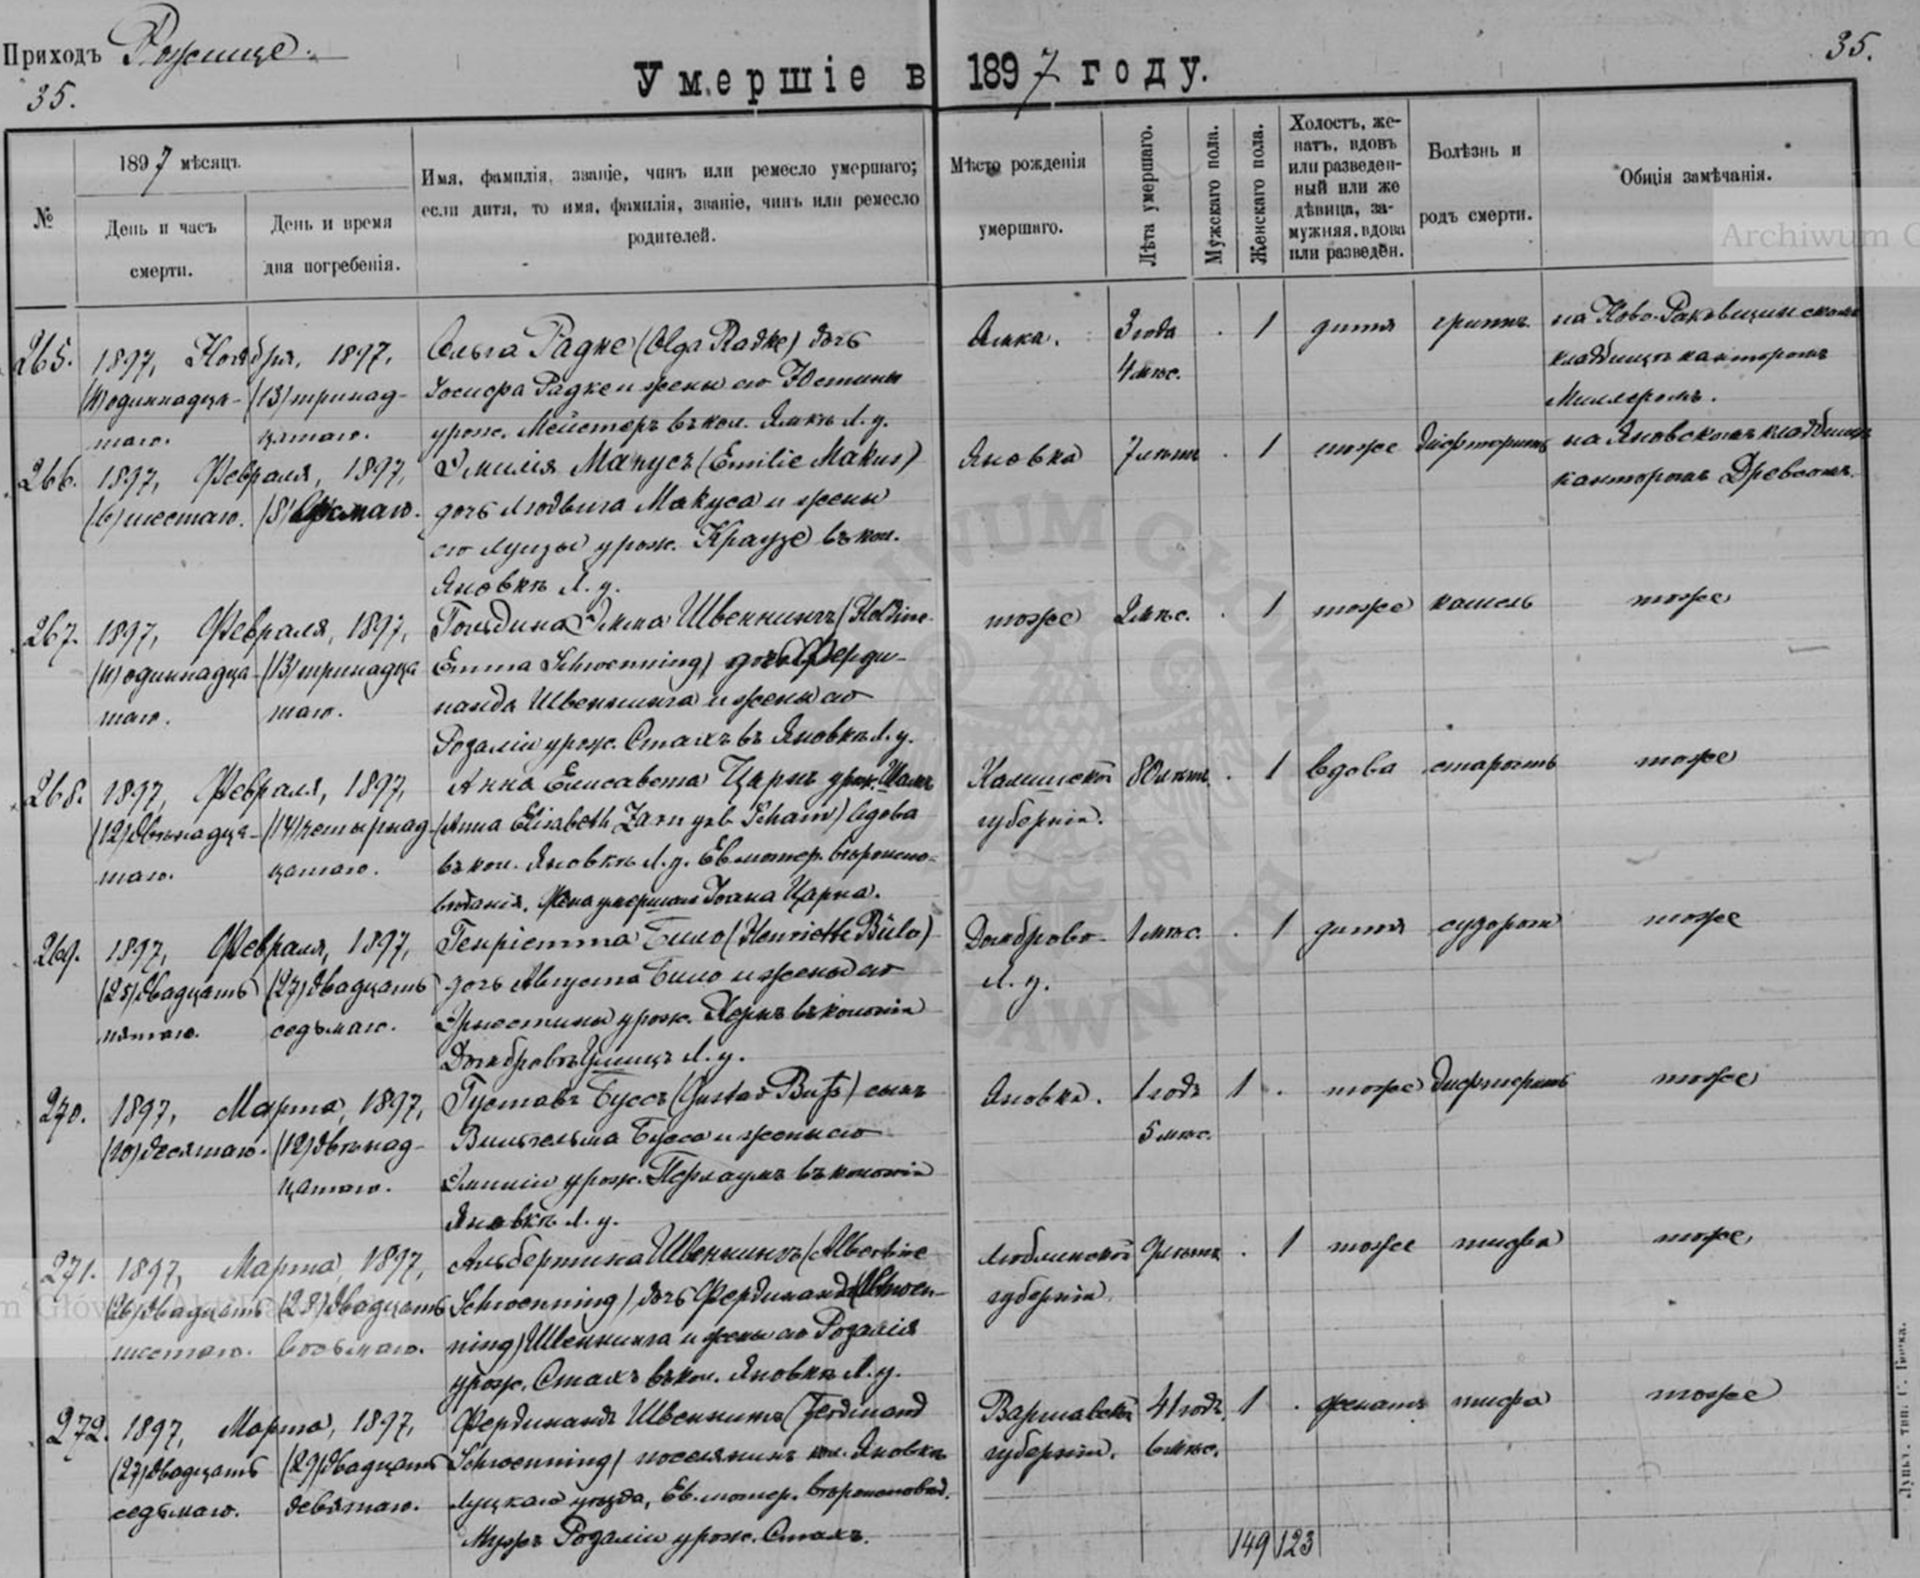 Приходъ Рожище.
35.
35.
Умершіе въ 1897 году.
№
1897 мѣсяцъ
День и часъ смерти.
День и время дня погребенія.
Имя, фамилія, званіе, чинъ или ремесло умершаго;
если дитя, то имя, фамилія, званіе, чинъ или ремесло
родителей.
Мѣсто рожденія
умершаго.
Лѣта умершаго.
Мужскаго пола.
Женскаго пола.
Холостъ, же-
натъ, вдовъ
или разведен-
ный или же
дѣвица, за-
мужняя, вдова
или разведен.
Болѣзнь и
родъ смерти.
Общія замѣчанія.
Archiwum G
265. 1897, Ноября, 1897, Ольга Радке (Olga Radke) дочь Ямка. 3 года . 1 дитя гриппъ на Ново-Раковщинскомъ
(11) одиннадца- (13) тринад- Іосифа Радке и жены его Юстины 4 мѣс. кладбищѣ канторомъ
таго. цатаго. урож. Мейстеръ въ кол. Ямкѣ Л. у. Миллеромъ.
266. 1897, Февраля, 1897, Эмилія Макусъ (Emilie Makus) Яновка 7 лѣтъ . 1 тоже дифтеритъ на Яновскомъ кладбищѣ
(6) шестаго. (8) восьмаго. дочь Людвига Макуса и жены канторомъ Древсомъ.
его Луизы урож. Краузе въ кол.
Яновкѣ Л. у.
267. 1897, Февраля, 1897, Гольдина Эмма Швеннингъ (Holdine тоже 2 мѣс. . 1 тоже кашель тоже
(11) одиннадца- (13) тринадца- Emma Schwenning) дочь Ферди-
таго. таго. нанда Швеннинга и жены его
Розаліи урож. Стахъ въ Яновкѣ Л. у.
268. 1897, Февраля, 1897, Анна Елисавета Царнъ урож. Шамъ Калишской 80 лѣтъ . 1 вдова старость тоже
(12) двѣнадца- (14) четырнад- (Anna Elisabeth Zarn geb Scham) вдова губерніи.
таго. цатаго. въ кол. Яновкѣ Л. у. Ев. лютер. вѣроиспо-
вѣданія. Жена умершаго Іоана Царна.
269. 1897, Февраля, 1897, Генріетта Било (Henriette Bülo) Домброво 1 мѣс. . 1 дитя судороги тоже
(25) двадцать (27) двадцать дочь Августа Било и жены его Л. у.
пятаго. седьмаго. Эрнестины урож. въ колоніи
Л. у.
270. 1897, Марта, 1897, Густавъ Буссъ (Gustav Buß) сынъ Яновка. 1 годъ 1 . тоже дифтеритъ тоже
(10) десятаго. (12) двѣнад- Вильгельма Бусса и жены его 5 мѣс.
цатаго. Эмиліи урож. въ колоніи
Яновкѣ Л. у.
271. 1897, Марта, 1897, Альбертина Швеннингъ (Albertine Люблинской 9 лѣтъ . 1 тоже тифа тоже
(26) двадцать (28) двадцать Schwenning) дочь Фердинанда (Schwen- губерніи
шестаго. восьмаго. ning) Швеннинга и жены его Розалія
урож. Стахъ въ кол. Яновкѣ Л. у.
272. 1897, Марта, 1897, Фердинандъ Швеннингъ (Ferdinand Варшавской 41 годъ 1 . женатъ тифа тоже
(27) двадцать (29) двадцать Schwenning) поселянинъ кол. Яновкѣ губерніи. 6 мѣс.
седьмаго. девятаго. Луцкаго уѣзда, Ев. лютер. вѣроисповѣд.
Мужъ Розаліи урож. Стахъ.
149 123